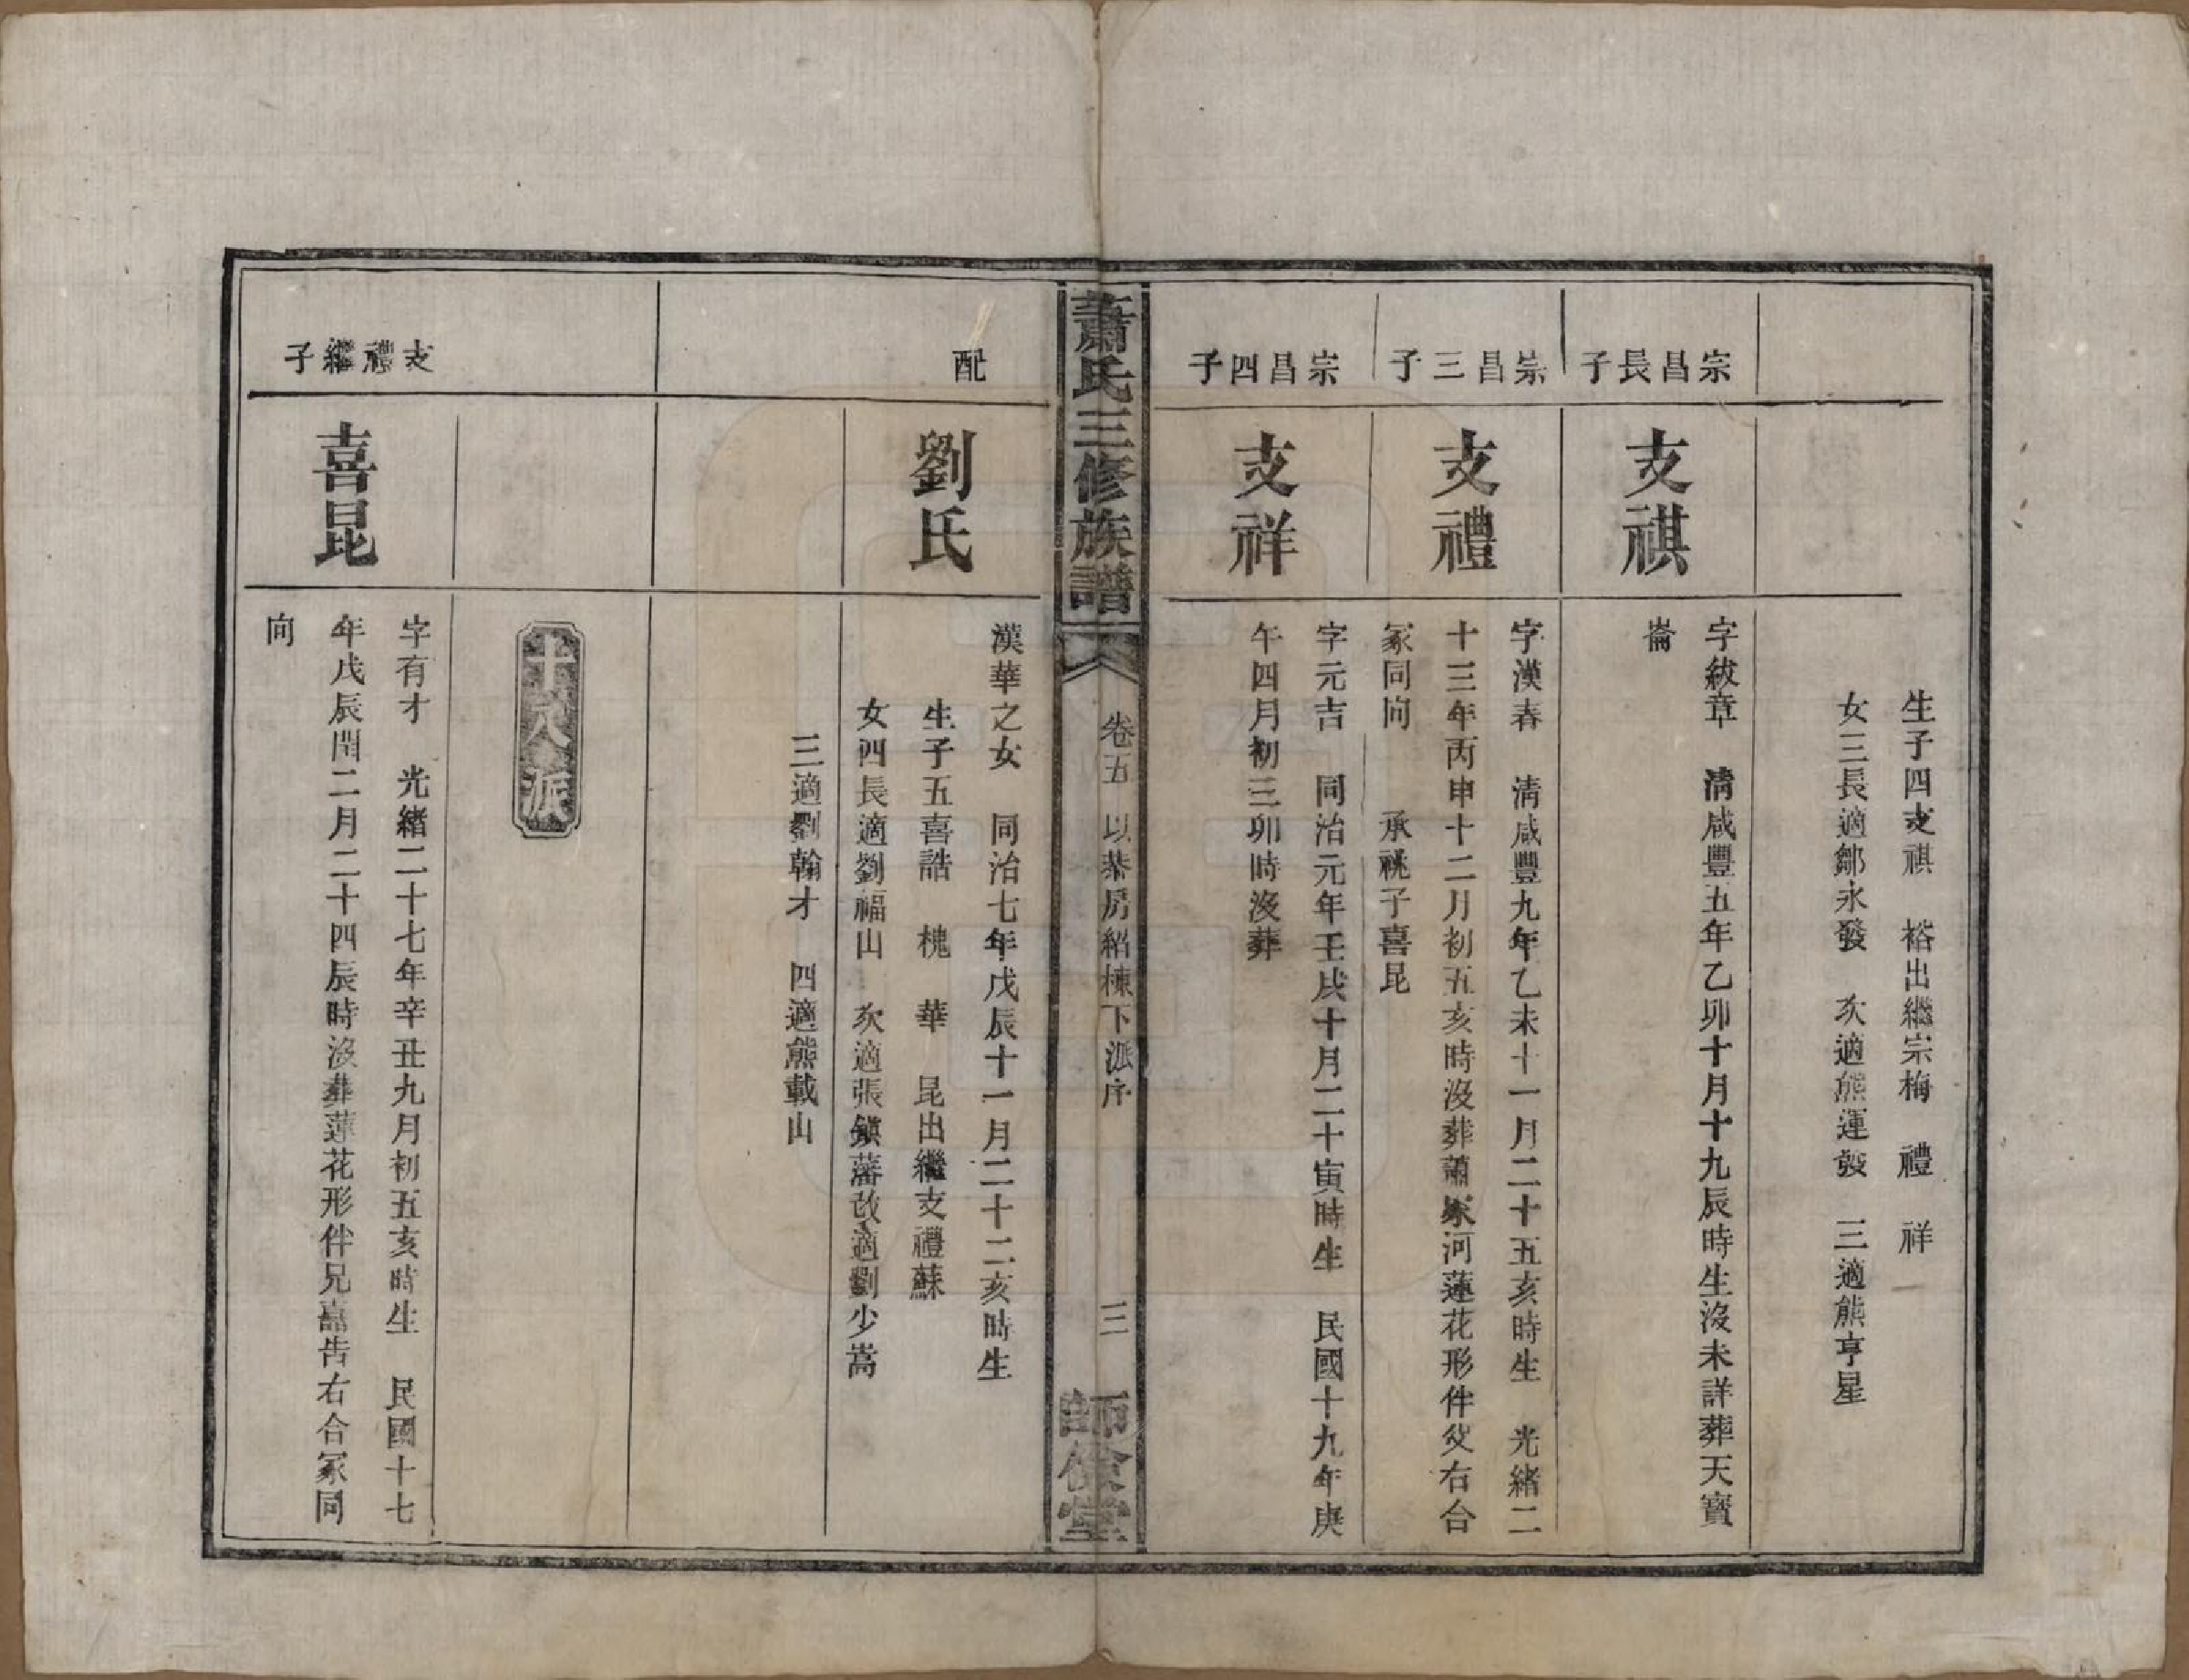 生子四支祺　裕出繼宗梅　禮　祥
女三長適鄒永發　次適熊運發　三適熊亨星
宗昌長子
支祺
字紱章　清咸豐五年乙卯十月十九辰時生沒未詳葬天寶
崙
宗昌三子
支禮
字漢春　清咸豐九年乙未十一月二十五亥時生　光緒二
十三年丙申十二月初五亥時沒葬蕭家河蓮花形件父右合
冢同向　　承祧子喜昆
宗昌四子
支祥
字元吉　同治元年壬戌十月二十寅時生　民國十九年庚
午四月初三卯時沒葬
蕭氏三修族譜
卷五　以恭房紹棟下派序
三
師儉堂
配
劉氏
漢華之女　同治七年戊辰十一月二十二亥時生
生子五喜誥　槐　華　昆出繼支禮蘇
女四長適劉福山　次適張鎮藩改適劉少嵩
三適劉翰才　四適熊載山
十八派
支禮繼子
喜昆
字有才　光緒二十七年辛丑九月初五亥時生　民國十七
年戊辰閏二月二十四辰時沒葬蓮花形伴兄喜誥右合冢同
向